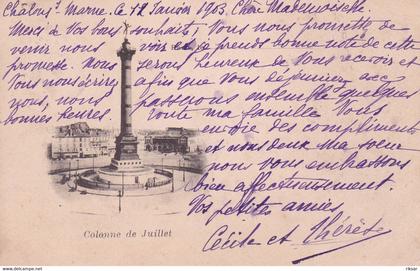 Châlons s. Marne. le 12 Janvier 1903. Chère Mademoiselle
Merci de Vos bons souhaits, Vous nous promettez de
venir nous voir et je prends bonne note de cette
promesse. Nous serons heureux de Vous recevoir et
Vous nous écrirez afin que Vous déjeuniez avec
nous, nous passerons ensemble quelques
bonnes heures. Toute ma famille Vous
envoie des compliments
et nous deux ma sœur
nous vous embrassons
bien affectueusement.
Vos petites amies
Cécile et Thérèse
Colonne de Juillet